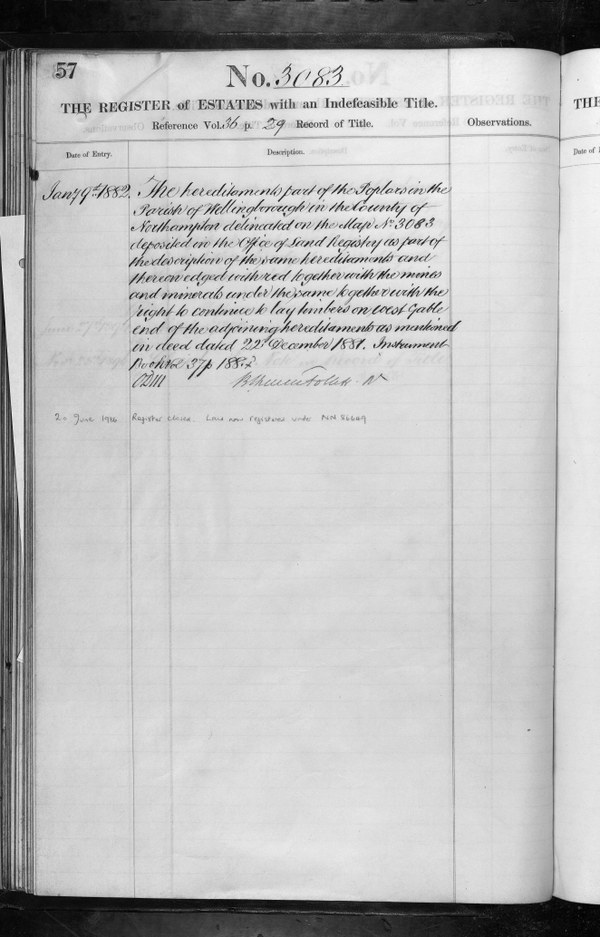 57
No. 3083
THE REGISTER of ESTATES with an Indefeasible Title.
Reference Vol. 36 p. 29 Record of Title.
Observations.
Date of Entry.
Description.
Jany 9th 1882.
The hereditaments part of the Poplars in the
Parish of Wellingborough in the County of
Northampton delineated on the Map No 3083
deposited in the Office of Land Registry as part of
the description of the same hereditaments and
thereon edged with red together with the mines
and minerals under the same together with the
right to continue to lay timbers on West Gable
end of the adjoining hereditaments as mentioned
in deed dated 22nd December 1881. Instrument
Book Vol 37 p 188.
June 1986
Register closed. Land now registered under NN 86669
THE
Date of